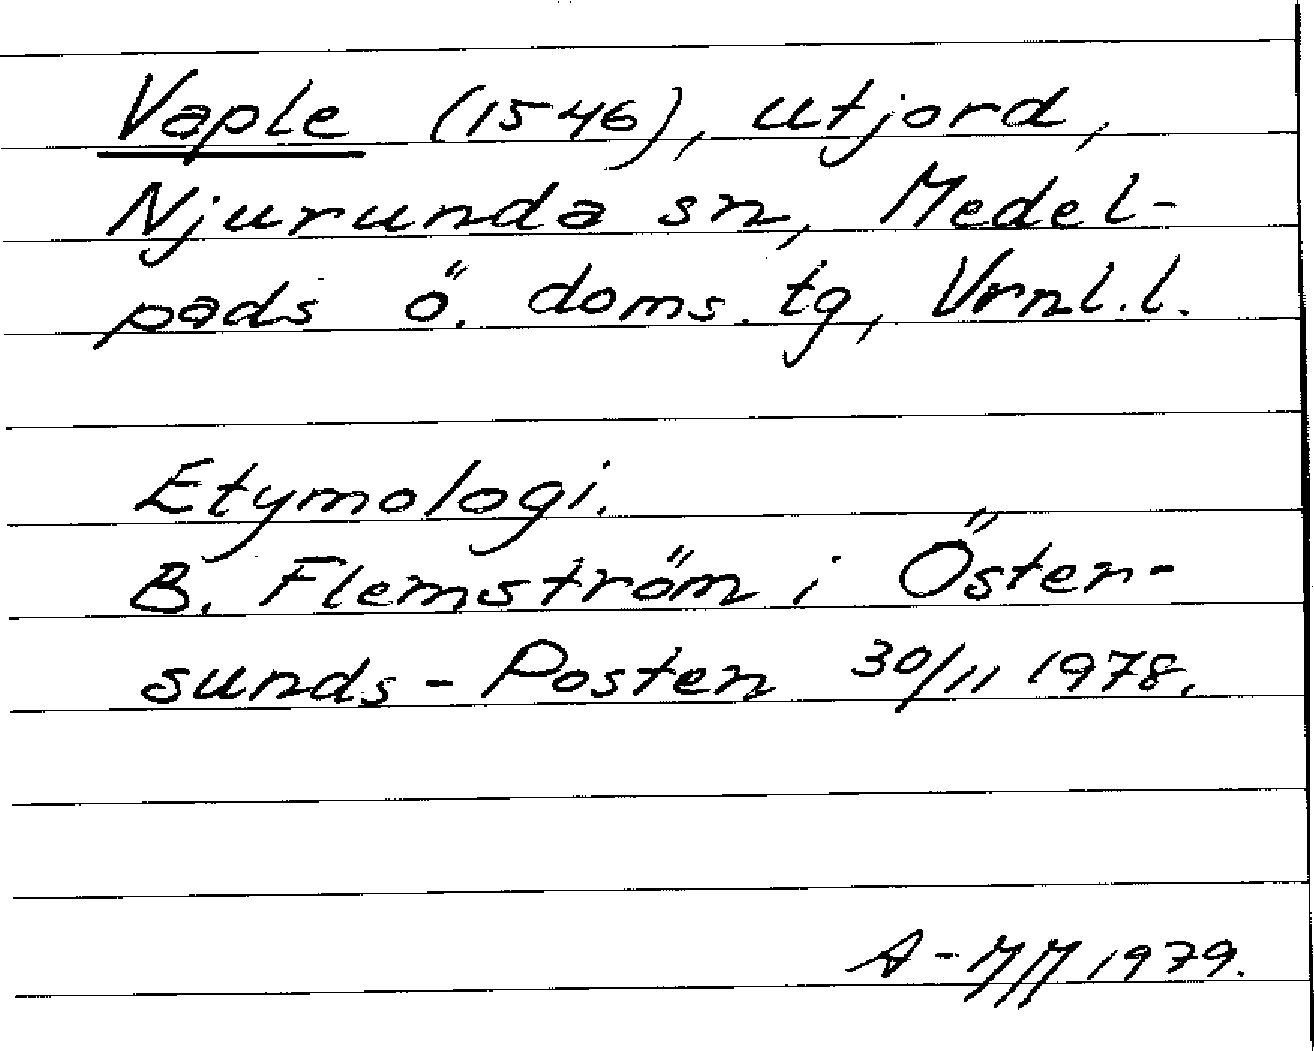 Vaple (1546), utjord,
Njurunda sn, Medel-
pads ö. doms. tg, Vrnl. l.
Etymologi.
B. Flemström i Öster-
sunds-Posten 30/11 1978.
A-MM 1979.